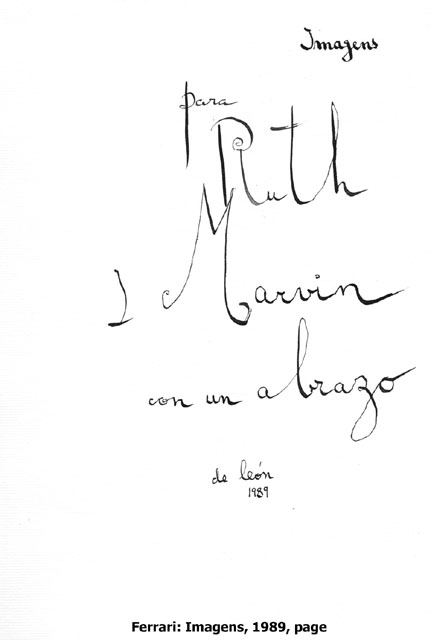 Imagens
para
Ruth
y Marvin
con un abrazo
de león
1989
Ferrari: Imagens, 1989, page